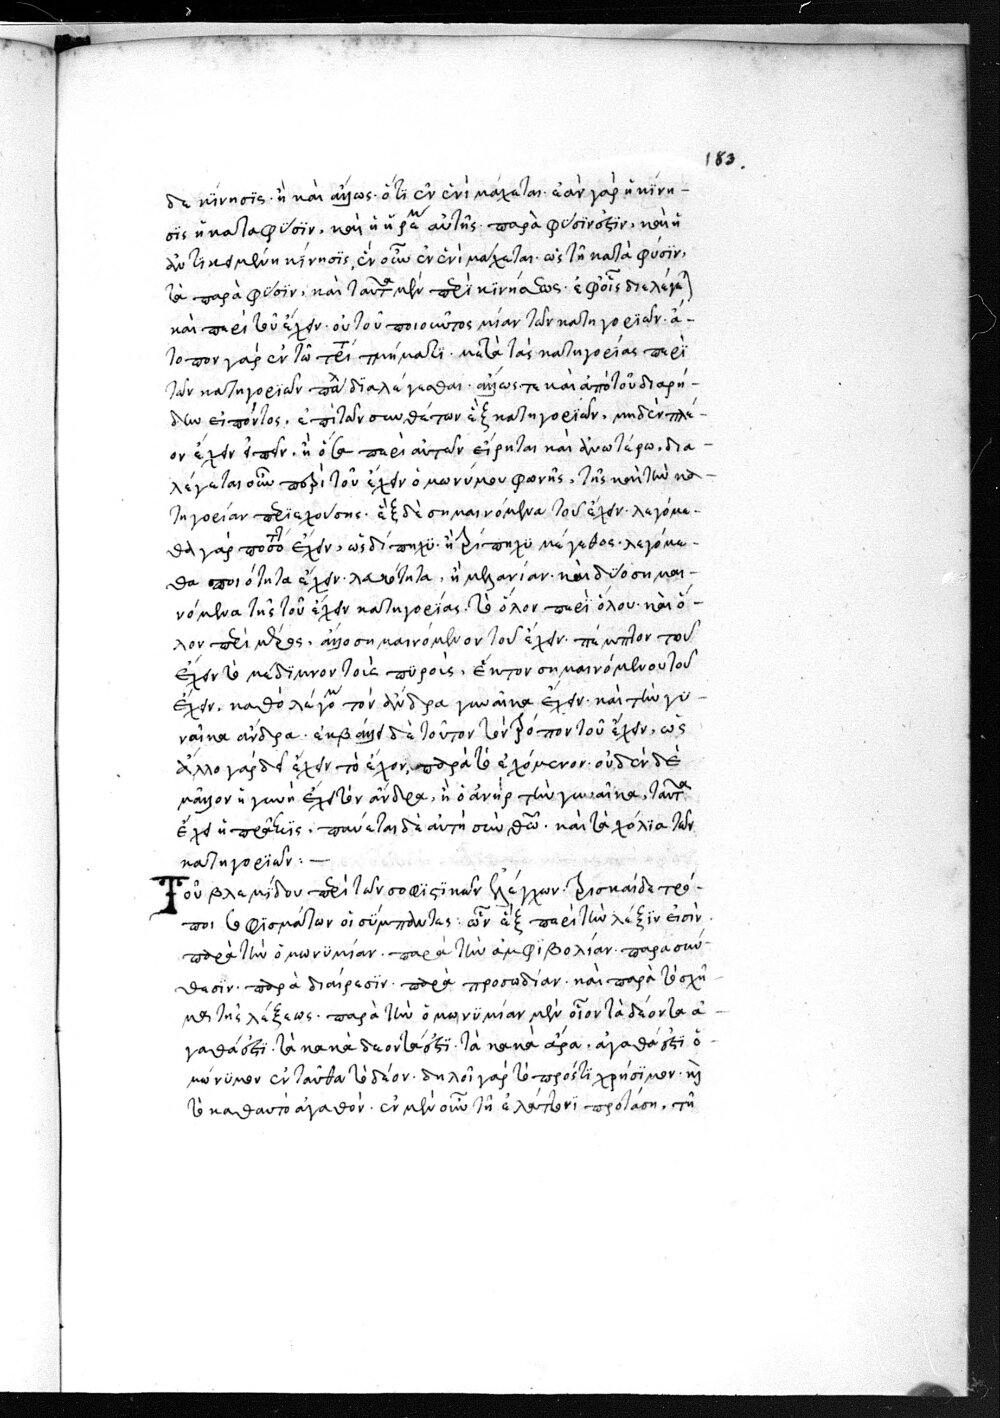 183.
δε κίνησις· ἢ καὶ ἄλλως· ὅτι ἓν ἑνὶ μάχεται· ἐὰν γὰρ ἡ κίνη-
σις ἡ κατα φύσιν, καὶ ἡ ἠρεμ αὐτῆς· παρὰ φύσιν ἐστὶν, καὶ ἡ
ἀντικειμένη κίνησις, ἓν οὖν ἑνὶ μάχεται· ὡς τῆ κατὰ φύσιν,
τὸ παρὰ φύσιν, καὶ ταῦτα μὲν περὶ κινήσεως· ἐφ οἷς διαλέγε
καὶ περὶ τοῦ ἔχειν· οὐ τοῦ ποιοῦντος μίαν τῶν κατηγοριῶν· ἄ-
τοπον γὰρ ἐν τῶ τρίτ τμήματι· μετὰ τὰς κατηγορίας περὶ
τῶν κατηγοριῶν παλ διαλέγεσθαι· ἄλλως τε καὶ ἀπὸ τοῦ διαρή-
δην εἰπόντος, ἐπὶ τῶν συνθέτων ἓξ κατηγοριῶν, μηδὲν πλέ-
ον ἔχειν εἰπεῖν, ἢ ὅσα περὶ αὐτῶν εἴρηται καὶ ἀνωτέρω, δια-
λέγεται οὖν περὶ τοῦ ἔχειν ὁμωνύμου φωνῆς, τῆς καὶ τὴν κα-
τηγορίαν περιεχούσης· ἓξ δὲ σημαινόμενα τοῦ ἔχειν· λεγόμε-
θα γὰρ ποσότητ ἔχειν, ὡς δίπηχυ· ἢ τρίπηχυ μέγεθος· λεγόμε-
θα ποιότητα ἔχειν· λευκότητα, ἢ μελανίαν· καὶ δύο σημαι-
νόμενα τῆς τοῦ ἔχειν κατηγορίας· τὸ ὅλον περὶ ὅλου· καὶ ὅ-
λον περὶ μέρος, ἄλλο σημαινόμενον τοῦ ἔχειν· πέμπτον τοῦ
ἔχειν τὸ μέδιμνον τοὺς πυροὺς, ἕκτον σημαινόμενον τοῦ
ἔχειν, καθὸ λέγομ τὸν ἄνδρα γυναῖκα ἔχειν· καὶ τὴν γυ-
ναῖκα ἄνδρα· ἐκβάλλει δὲ τοῦτον τὸν τρόπον τοῦ ἔχειν, ὡς
ἄλλο γὰρ δεῖ ἔχειν τὸ ἔχον, παρὰ τὸ ἐχόμενον· οὐδὲν δὲ
μᾶλλον ἡ γυνὴ ἔχει τὸν ἄνδρα, ἢ ὁ ἀνὴρ τὴν γυναῖκα, ταῦτα
ἔχει ἡ πρᾶξις, παύεται δὲ αὐτὴ σὺν θεῶ· καὶ τὰ σχόλια τῶν
κατηγοριῶν: —
Τοῦ βλεμίδου περὶ τῶν σοφιστικῶν ἐλέγχων· Τρισκαίδε τρό-
ποι σοφισμάτων οἱ σύμπαντες: ὧν ἓξ παρὰ τὴν λέξιν εἰσὶν·
παρὰ τὴν ὁμωνυμίαν· παρὰ τὴν ἀμφιβολίαν· παρὰ σύν-
θεσιν· παρὰ διαίρεσιν· παρὰ προσωδίαν· καὶ παρὰ τὸ σχῆ-
μα τῆς λέξεως· παρὰ τὴν ὁμωνυμίαν μὲν οἷον τὰ δέοντα ἀ-
γαθά ἐστι· τὰ κακὰ δέοντά ἐστι· τὰ κακὰ ἄρα, ἀγαθά ἐστι ὁ-
μώνυμον ἐνταῦθα τὸ δέον· δηλοῖ γὰρ τὸ πρός τι χρήσιμον· καὶ
τὸ καθαυτὸ ἀγαθόν· ἐν μὲν οὖν τῆ ἐλάττονι προτάσει, τῆ